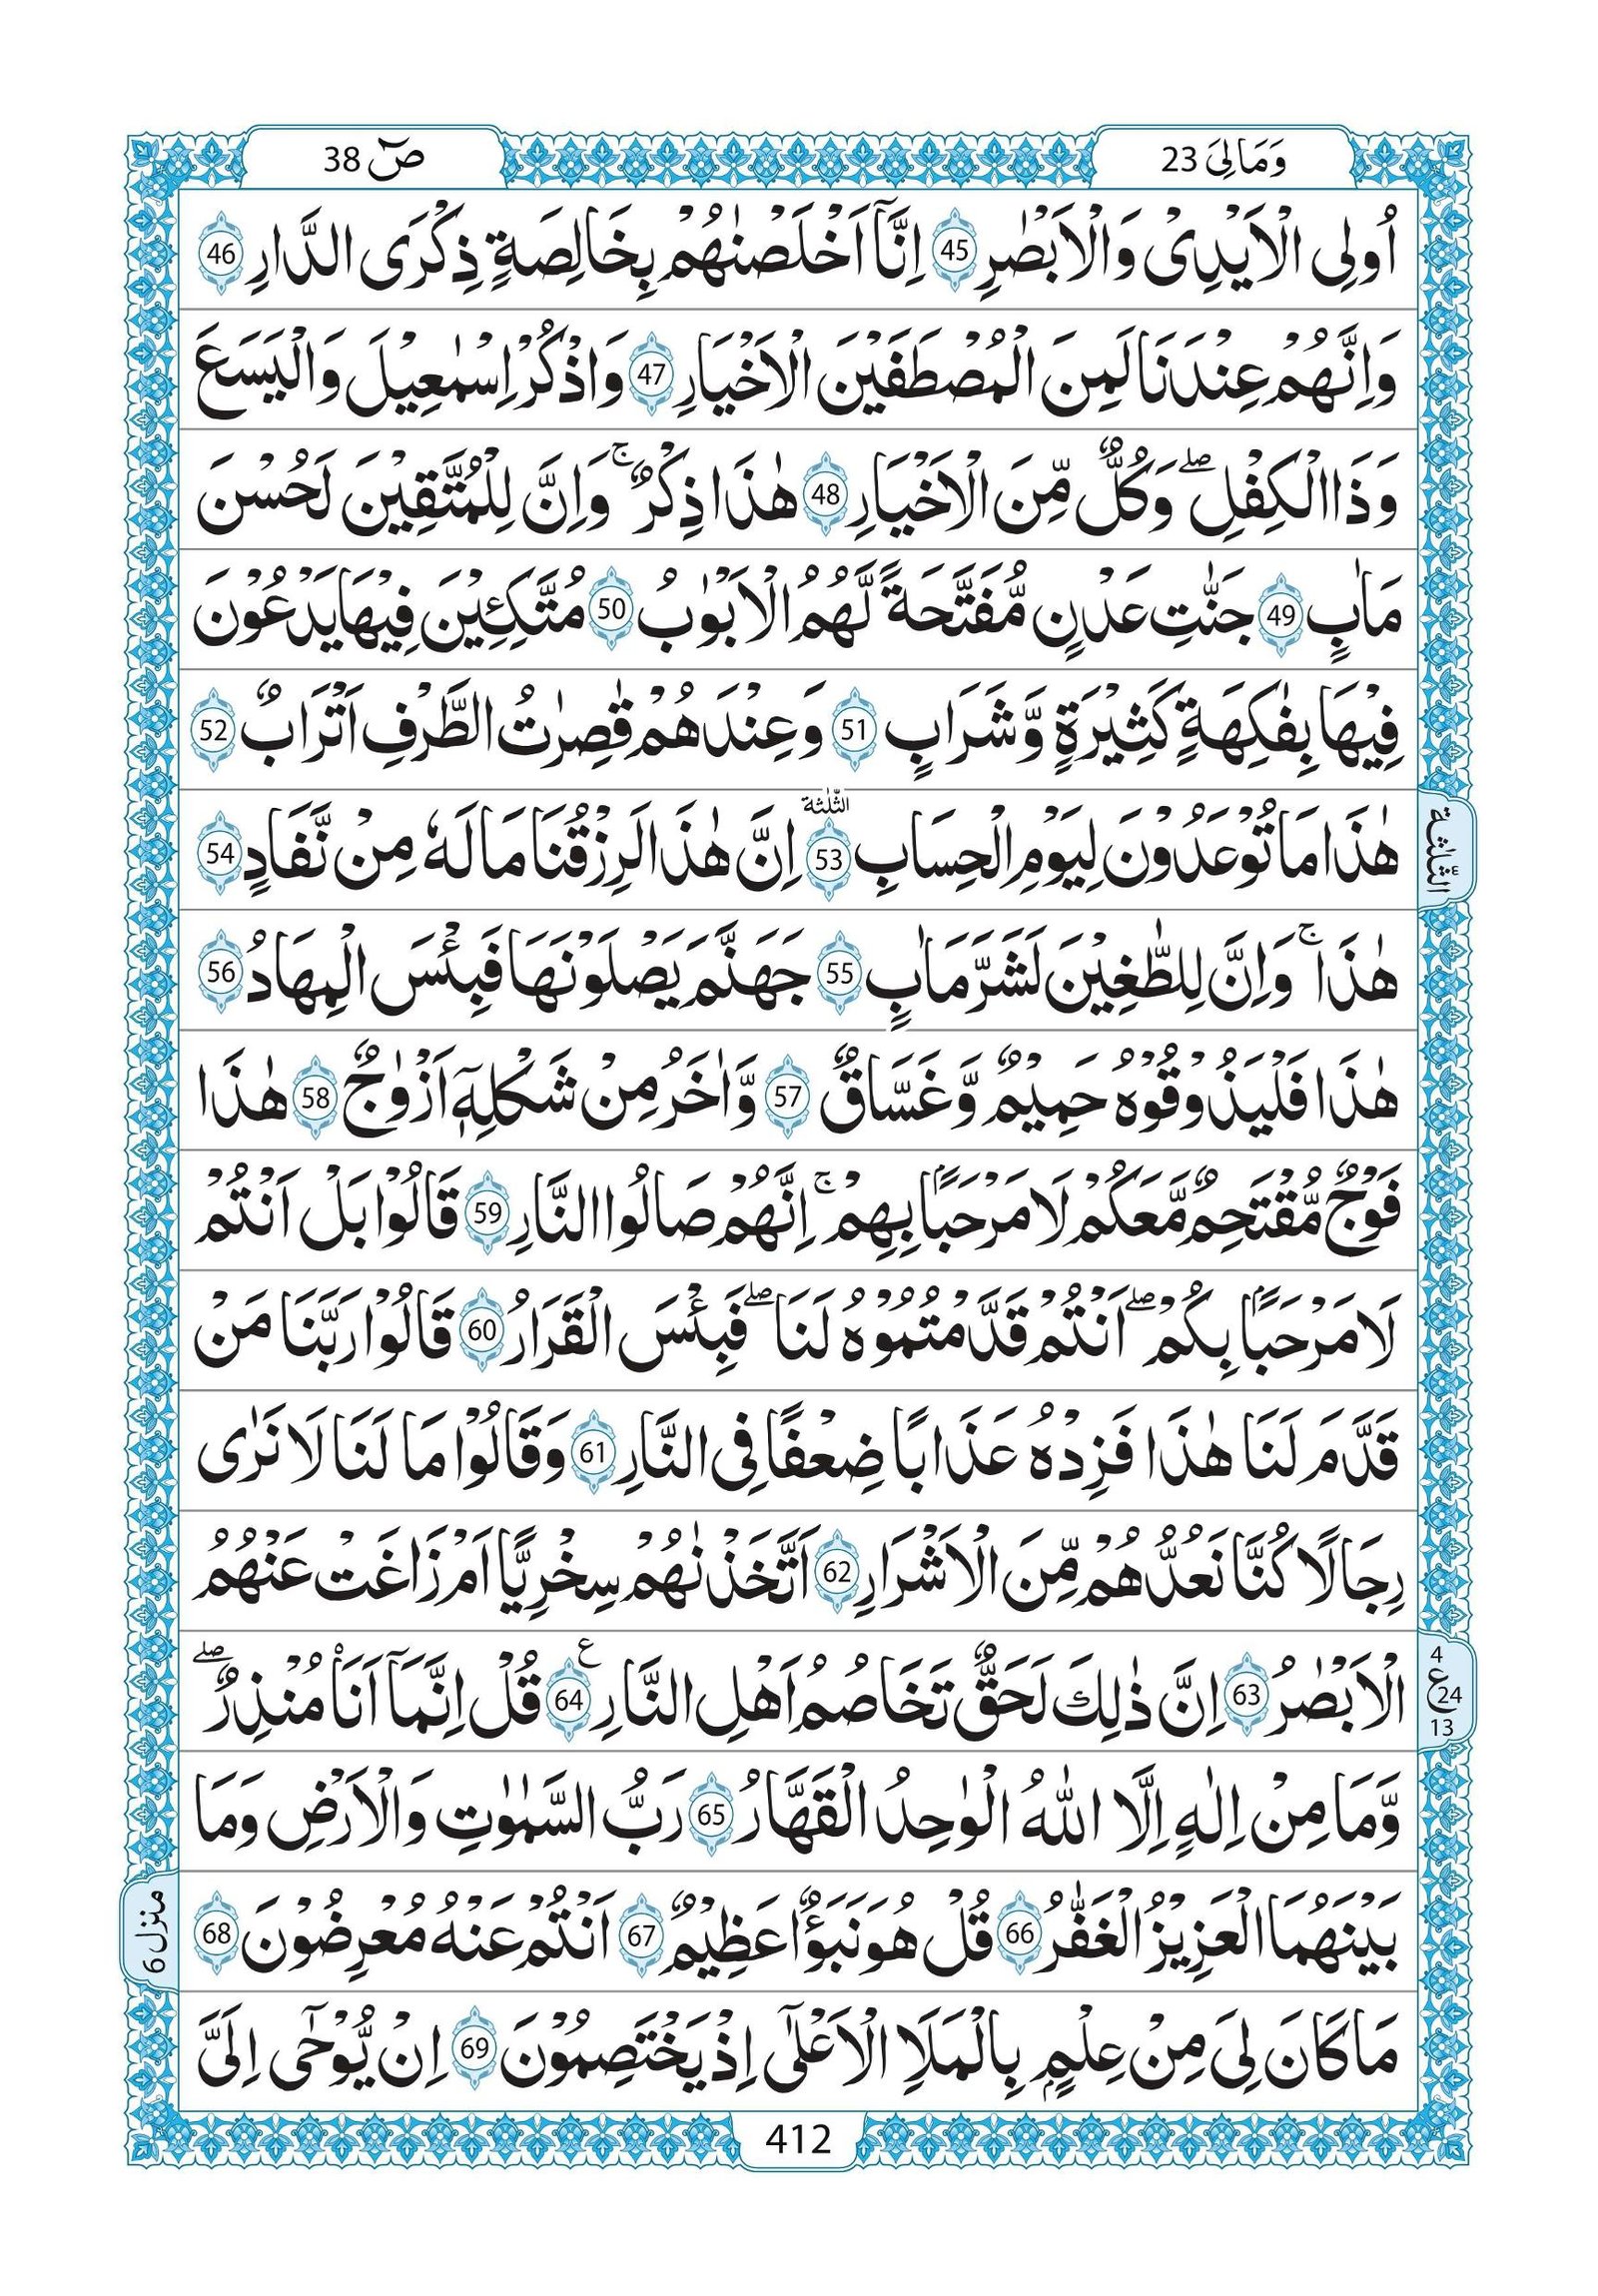 وَمَالِیَ 23
صٓ 38
اُولِی الْاَیْدِیْ وَالْاَبْصٰرِ 45 اِنَّاۤ اَخْلَصْنٰهُمْ بِخَالِصَةٍ ذِكْرَی الدَّارِ 46
وَاِنَّهُمْ عِنْدَنَا لَمِنَ الْمُصْطَفَیْنَ الْاَخْیَارِ 47 وَاذْكُرْ اِسْمٰعِیْلَ وَالْیَسَعَ
وَذَا الْكِفْلِ ۖ وَكُلٌّ مِّنَ الْاَخْیَارِ 48 هٰذَا ذِكْرٌ ۚ وَاِنَّ لِلْمُتَّقِیْنَ لَحُسْنَ
مَاٰبٍ 49 جَنّٰتِ عَدْنٍ مُّفَتَّحَةً لَّهُمُ الْاَبْوٰبُ 50 مُتَّكِـِٕیْنَ فِیْهَا یَدْعُوْنَ
فِیْهَا بِفٰكِهَةٍ كَثِیْرَةٍ وَّشَرَابٍ 51 وَعِنْدَهُمْ قٰصِرٰتُ الطَّرْفِ اَتْرَابٌ 52
هٰذَا مَا تُوْعَدُوْنَ لِیَوْمِ الْحِسَابِ 53 الثّلٰثة اِنَّ هٰذَا لَرِزْقُنَا مَا لَهٗ مِنْ نَّفَادٍ 54
الثّلٰثة
هٰذَا ۚ وَاِنَّ لِلطّٰغِیْنَ لَشَرَّ مَاٰبٍ 55 جَهَنَّمَ یَصْلَوْنَهَا فَبِئْسَ الْمِهَادُ 56
هٰذَا فَلْیَذُوْقُوْهُ حَمِیْمٌ وَّغَسَّاقٌ 57 وَّاٰخَرُ مِنْ شَكْلِهٖۤ اَزْوٰجٌ 58 هٰذَا
فَوْجٌ مُّقْتَحِمٌ مَّعَكُمْ لَا مَرْحَبًۢا بِهِمْ ۚ اِنَّهُمْ صَالُوا النَّارِ 59 قَالُوْا بَلْ اَنْتُمْ
لَا مَرْحَبًۢا بِكُمْ ۖ اَنْتُمْ قَدَّمْتُمُوْهُ لَنَا ۖ فَبِئْسَ الْقَرَارُ 60 قَالُوْا رَبَّنَا مَنْ
قَدَّمَ لَنَا هٰذَا فَزِدْهُ عَذَابًا ضِعْفًا فِی النَّارِ 61 وَقَالُوْا مَا لَنَا لَا نَرٰی
رِجَالًا كُنَّا نَعُدُّهُمْ مِّنَ الْاَشْرَارِ 62 اَتَّخَذْنٰهُمْ سِخْرِیًّا اَمْ زَاغَتْ عَنْهُمُ
الْاَبْصٰرُ 63 اِنَّ ذٰلِكَ لَحَقٌّ تَخَاصُمُ اَهْلِ النَّارِ 64 ع قُلْ اِنَّمَاۤ اَنَا۠ مُنْذِرٌ ۖ
4
ع 24
13
وَّمَا مِنْ اِلٰهٍ اِلَّا اللّٰهُ الْوٰحِدُ الْقَهَّارُ 65 رَبُّ السَّمٰوٰتِ وَالْاَرْضِ وَمَا
بَیْنَهُمَا الْعَزِیْزُ الْغَفّٰرُ 66 قُلْ هُوَ نَبَؤٌا عَظِیْمٌ 67 اَنْتُمْ عَنْهُ مُعْرِضُوْنَ 68
منزل 6
مَا كَانَ لِیَ مِنْ عِلْمٍۭ بِالْمَلَاِ الْاَعْلٰۤی اِذْ یَخْتَصِمُوْنَ 69 اِنْ یُّوْحٰۤی اِلَیَّ
412